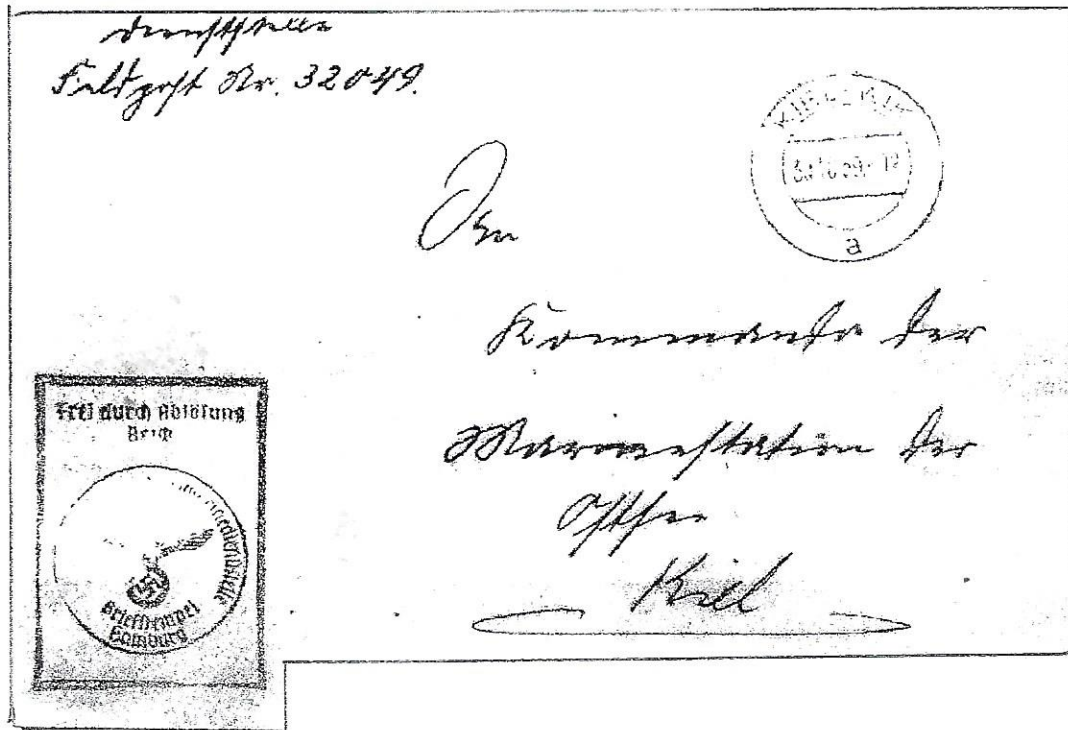 Dienststelle
Feldpost Nr. 32049.
a
Den
Kommando der
Marinestation der
Ostsee
Kiel
Frei durch Ablösung
Reich
Briefstempel
Hamburg